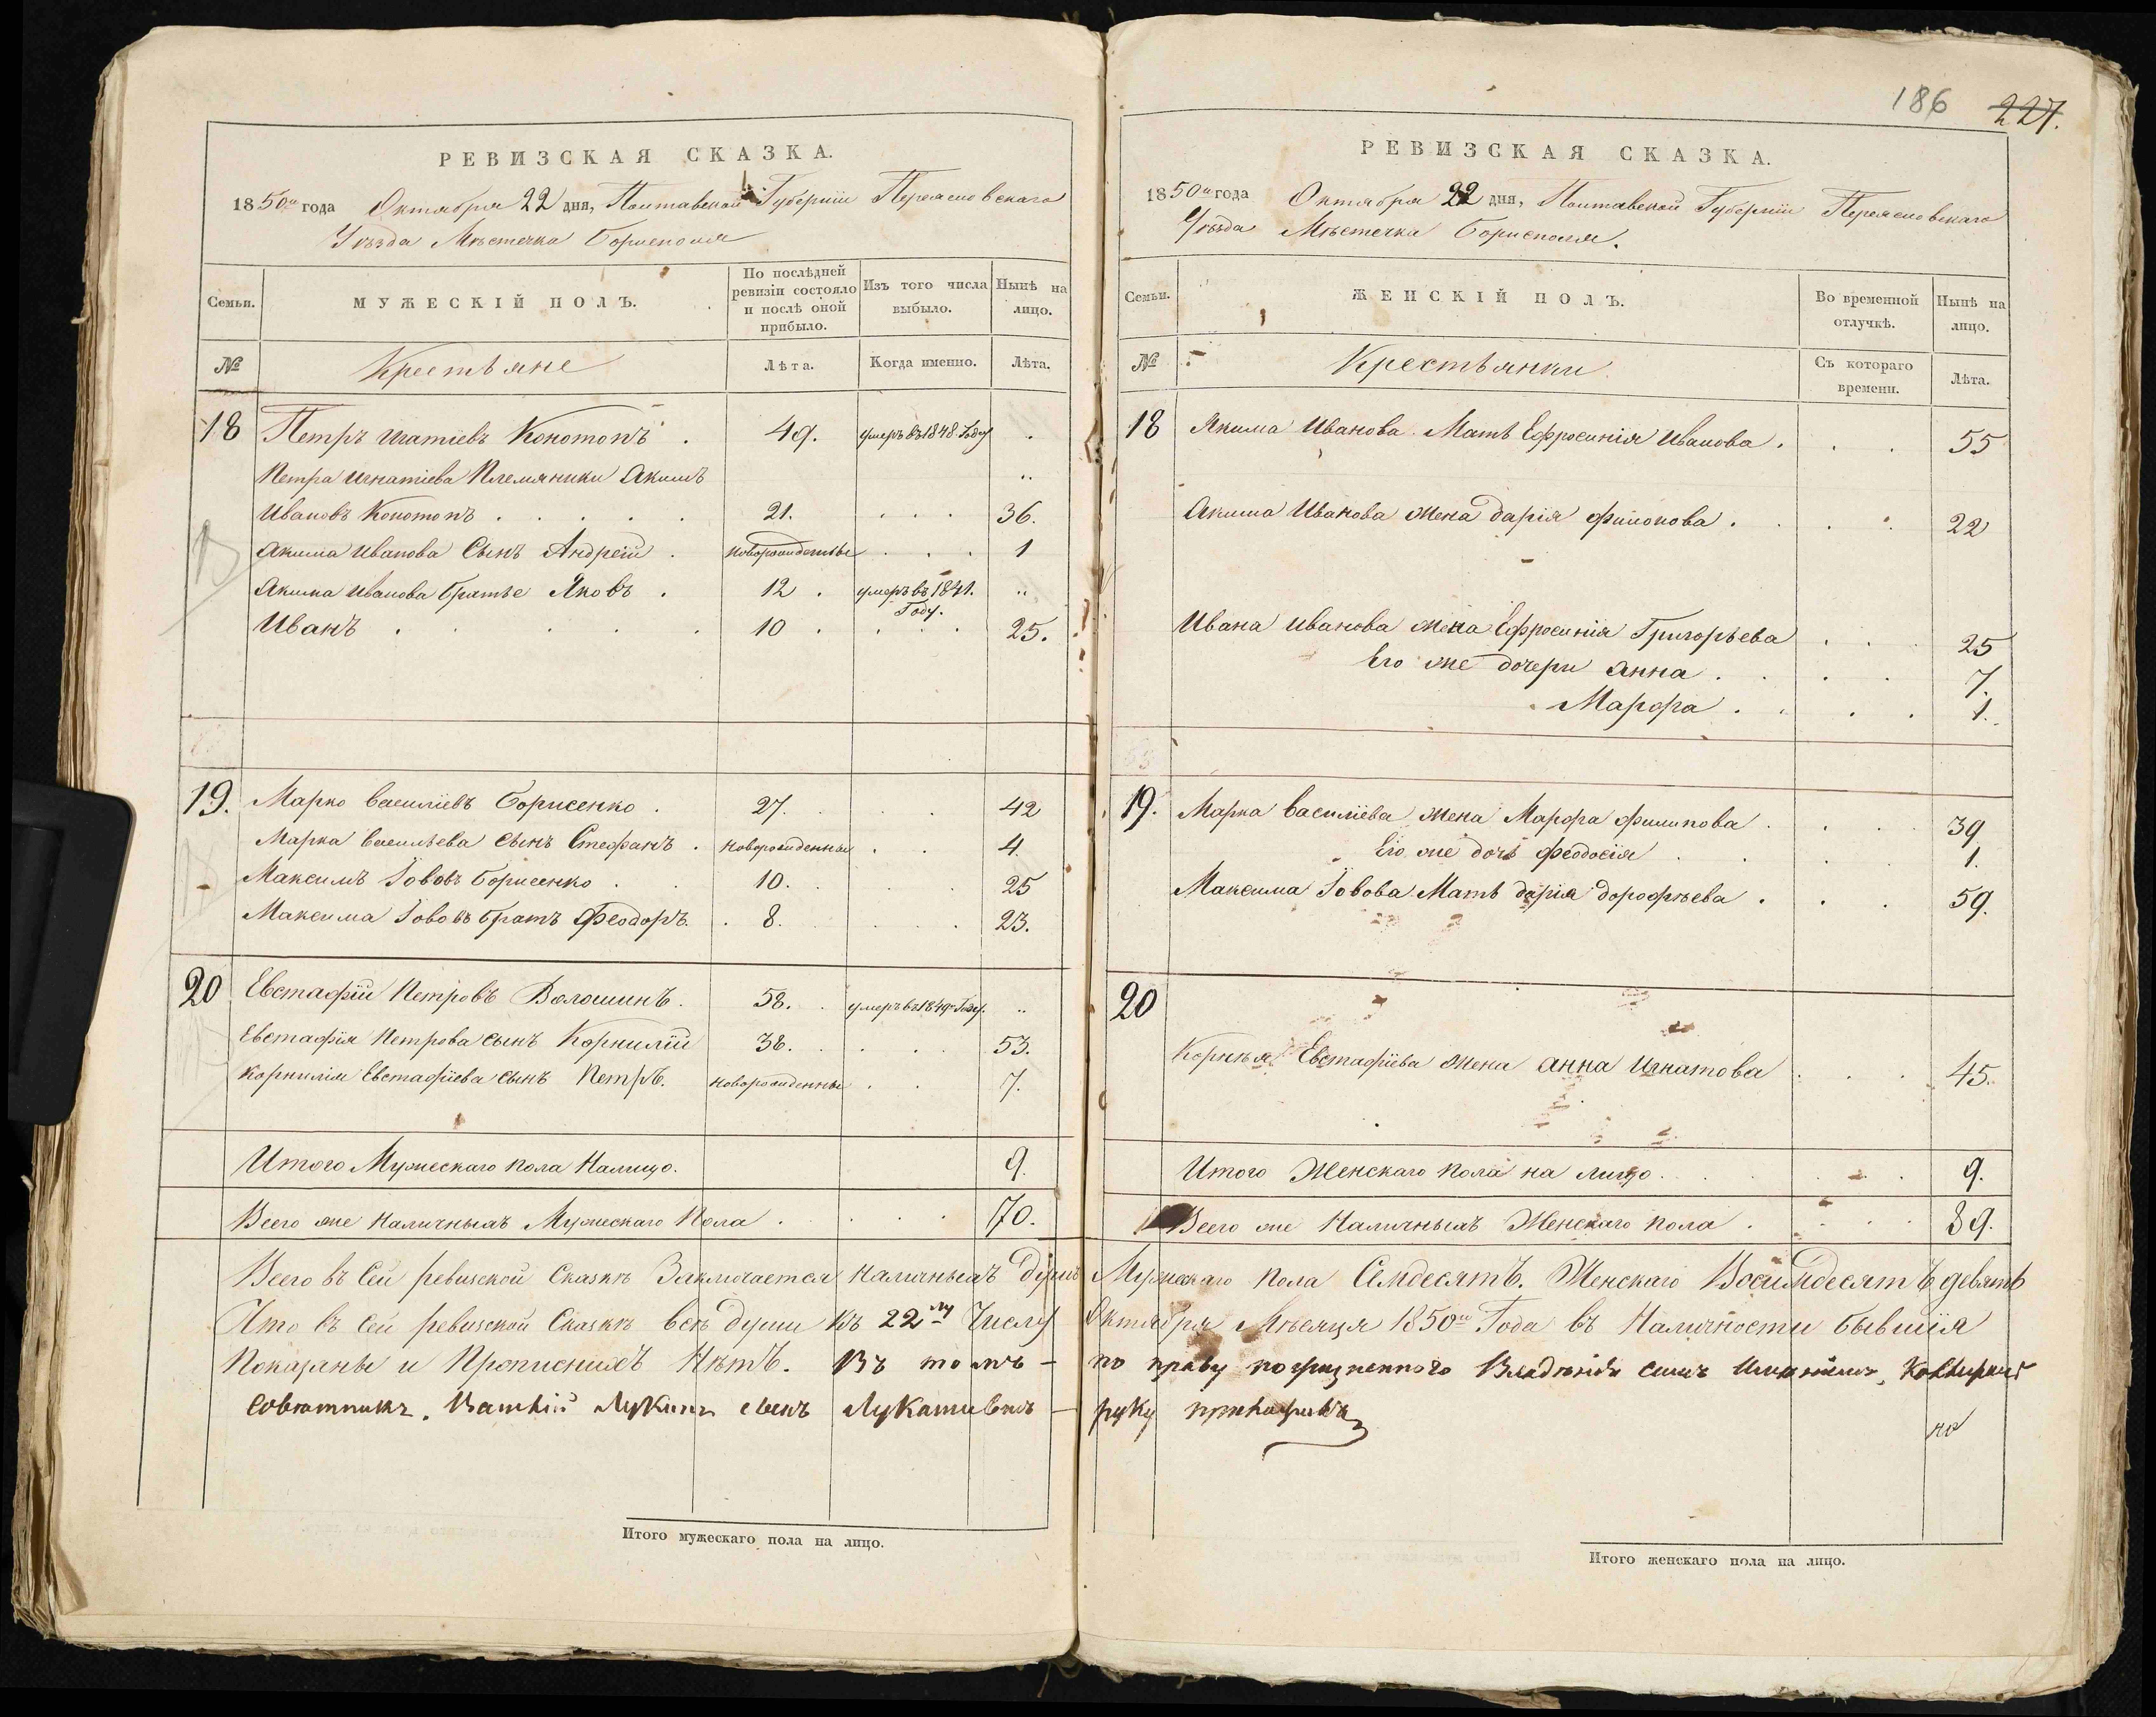 РЕВИЗСКАЯ СКАЗКА.
1850го года Октября 22 дня, Полтавской Губерніи Переясловскаго
Уѣзда Мѣстечка Борисполя
Семьи.
МУЖЕСКІЙ ПОЛЪ.
По послѣдней
ревизіи состояло
и послѣ оной
прибыло.
Изъ того числа
выбыло.
Нынѣ на
лицо.
№
Крестьяне
Лѣта.
Когда именно.
Лѣта.
18 Петръ Игнатіевъ Конотопъ . 49. умеръ въ 1848 Году .
Петра Игнатіева Племяники Акимъ „
Ивановъ Конотопъ . . . . . 21. . . . 36.
Акима Иванова Сынъ Андрей . новорожденные . . . 1
Акима Иванова братье Яковъ . 12 . умеръ въ 1841. „
Году.
Иванъ . . . . . 10 . . . . 25.
19. Марко Василіевъ Борисенко . 27. . . . 42
Марка Васильева сынъ Стефанъ . новорожденные . . 4.
Максимъ Іововъ Борисенко . . 10. . . . 25
Максима Іововъ братъ Феодоръ. . 8. . . . . 23.
20 Евстафій Петровъ Волошинъ. 58. . умеръ въ 1849 Году. „
Евстафія Петрова сынъ Корнилій 38. . . . . 53.
Корнилія Евстафіева сынъ Петръ. новорожденные . . 7.
Итого Мужескаго пола Налицо. 9.
Всего же наличныхъ Мужескаго Пола . . . . . 70.
Всего въ Сей ревизской Сказкѣ Заключается наличныхъ Душъ
Что въ Сей ревизской Сказкѣ всѣ души къ 22му Числу
Показаны и Прописныхъ Нѣтъ. Въ томъ —
Совѣтникъ. сынъ —
Итого мужескаго пола на лицо.
186 227.
РЕВИЗСКАЯ СКАЗКА.
1850го года Октября 22 дня, Полтавской Губерніи Переясловскаго
Уѣзда Мѣстечка Борисполя.
Семьи.
ЖЕНСКІЙ ПОЛЪ.
Во временной
отлучкѣ.
Нынѣ на
лицо.
№
Крестьянки
Съ котораго
времени.
Лѣта.
18 Акима Иванова Мать Ефросинія Иванова . . . 55
Акима Иванова жена Дарія Филонова . . . 22
Ивана Иванова жена Ефросинія Григорьева . . 25
Его же дочери Анна . . . . 7.
Марфа . . . . 1.
19. Марка Василіева жена Марфа Филипова . . . 39
Его же дочь Феодосія . . . . 1.
Максима Іовова Мать Дарія Дорофѣева . . . 59.
20
Евстафіева жена Анна Игнатова . . . 45.
Итого Женскаго пола на лицо . . . . 9.
Всего же Наличныхъ Женскаго пола . . . . 89.
Мужескаго пола Семдесятъ. Женскаго Восимдесятъ девять
Октября Мѣсяця 1850го Года въ Наличности бывшія
по праву Владѣнія симъ Имѣніемъ,
руку приложилъ
Итого женскаго пола на лицо.